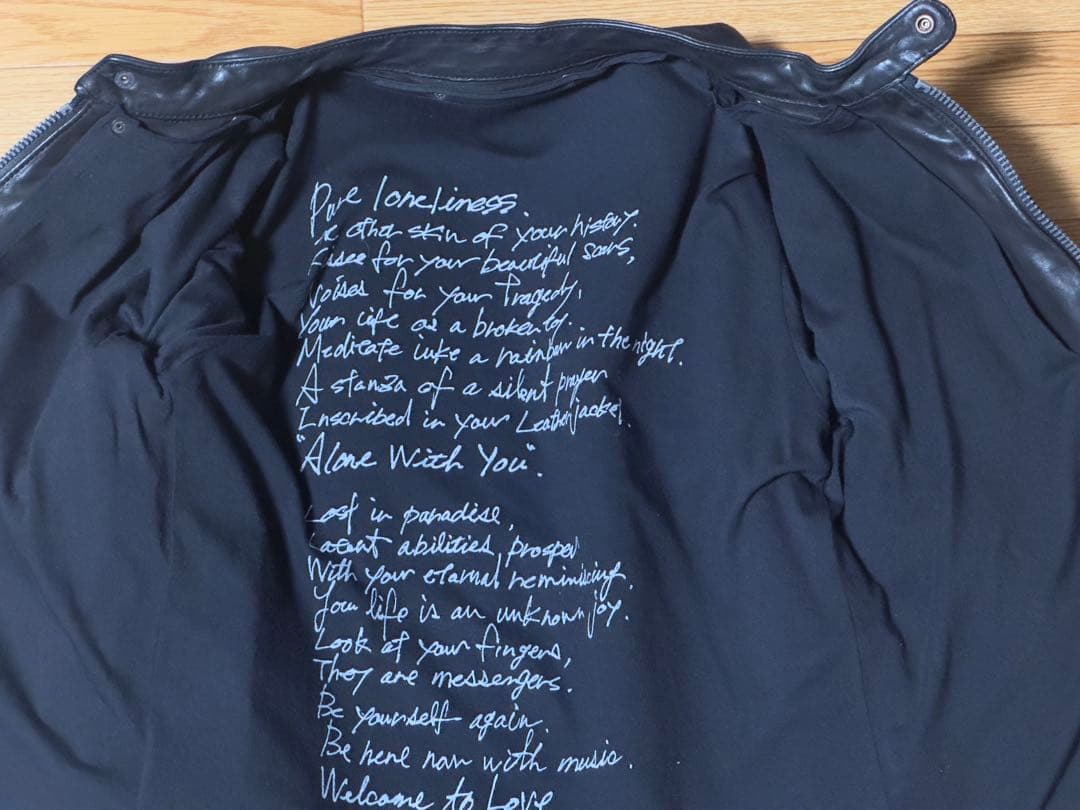 Pure loneliness.
other skin of your history.
for your beautiful scars,
Voises for your Tragedy,
Your life as a broken toy.
Medicate like a rainbow in the night.
A stanza of a silent prayer
Inscribed in your Leather jacket.
"Alone With You".
Lost in paradise,
Latent abilities prosper
With your eternal reminiscing.
Your life is an unknown joy.
Look at your fingers,
They are messengers.
Be yourself again.
Be here now with music.
Welcome to Love